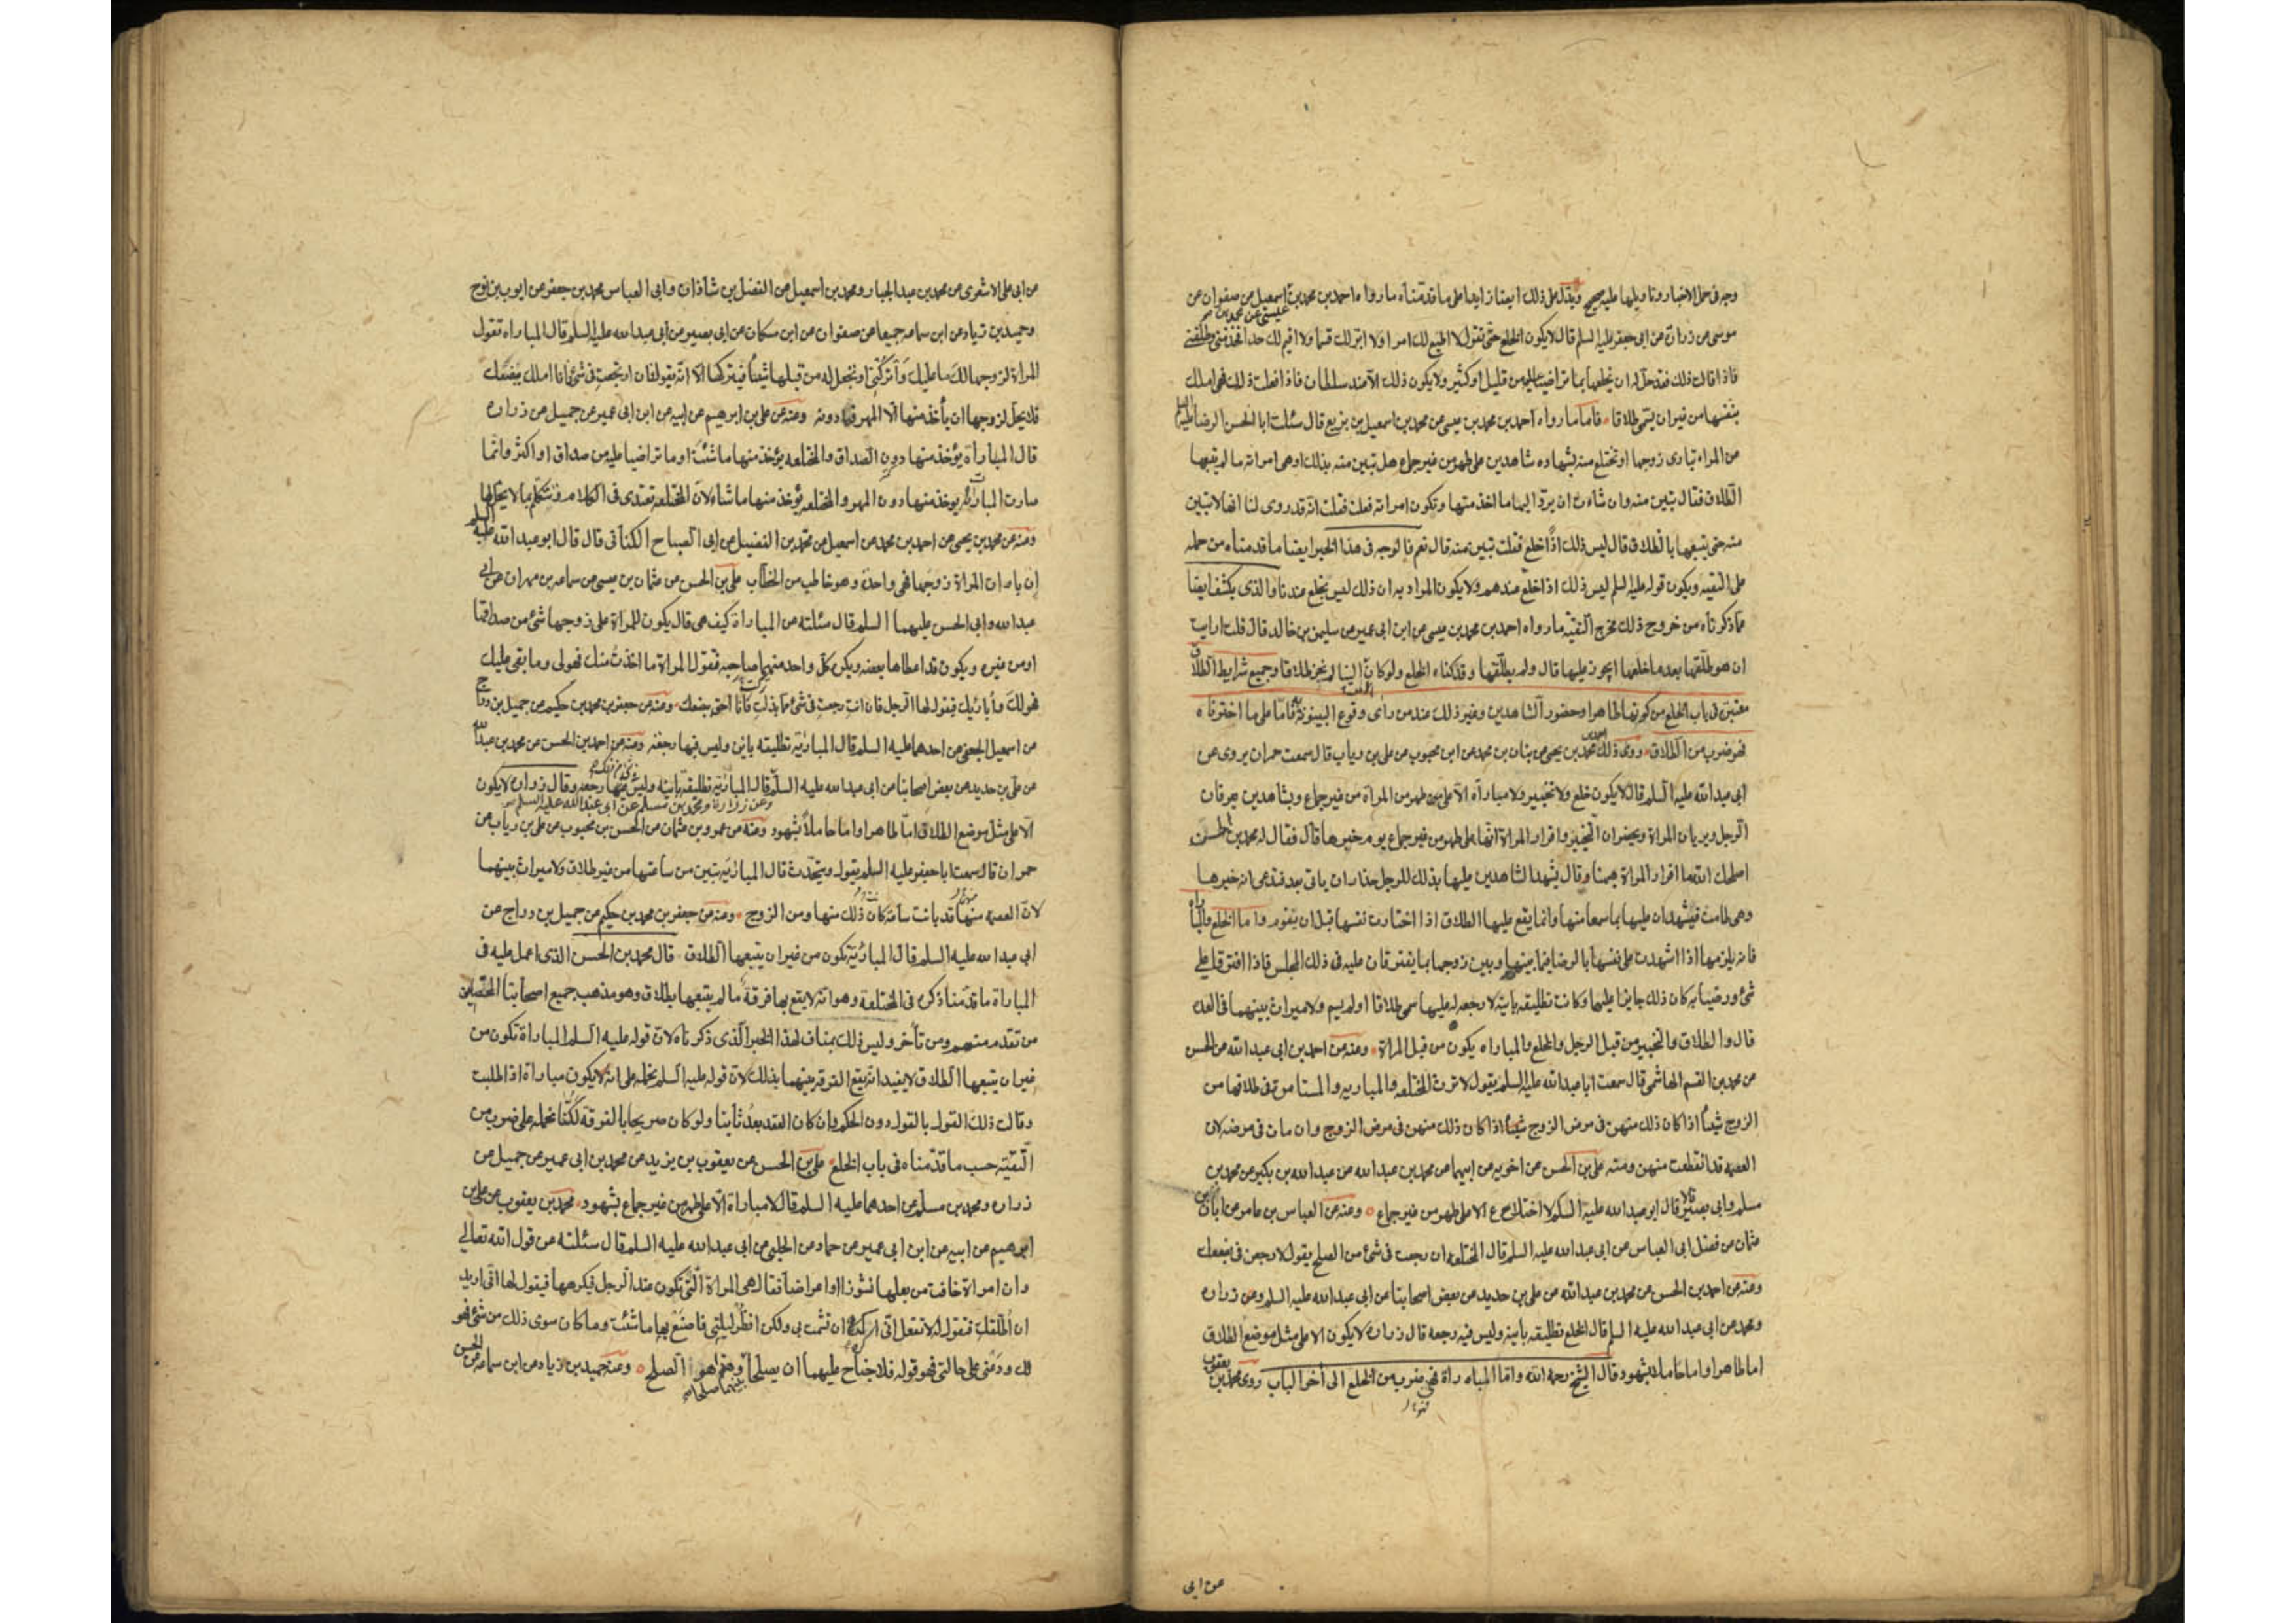 وجه فى حمل الاخبار وتاويلها عليه صحيح ويدل على ذلك ايضا زايدا على ما قدمناه ما رواه احمد بن محمد بن اسمعيل عن صفوان عن
عيسى عن محمد بن
موسى عن زرارة عن ابى جعفر عليه السلم قال لا يكون الخلع حتى تقول لا اطيع لك امرا ولا ابر لك قسما ولا اقيم لك حدا فخذ منى وطلقنى
فاذا قالت ذلك فقد حل له ان يخلعها بما تراضيا عليه من قليل او كثير ولا يكون ذلك الا عند سلطان فاذا فعلت ذلك فهى املك
بنفسها من غير ان يسمى طلاقا فاما ما رواه احمد بن محمد بن عيسى عن محمد بن اسمعيل بن بزيع قال سئلت ابا الحسن الرضا عليه السلم
عن المراه تبارى زوجها او تختلع منه بشهاده شاهدين على طهر من غير جماع هل تبين منه بذلك او هى امراته ما لم يتبعها
الطلاق فقال تبين منه وان شاءت ان يرد اليها ما اخذ منها وتكون امراته فعلت فقلت انه قد روى لنا انها لا تبين
منه حتى يتبعها بالطلاق قال ليس ذلك اذا خلع فقلت تبين منه قال نعم فالوجه فى هذا الخبر ايضا ما قدمناه من حمله
على التقيه ويكون قوله عليه السلم ليس ذلك اذا خلع عندهم ولا يكون المراد به ان ذلك ليس بخلع عندنا والذى يكشف ايضا
عما ذكرناه من خروج ذلك مخرج التقيه ما رواه احمد بن محمد بن عيسى عن ابن ابى عمير عن سليمن بن خالد قال قلت ارايت
ان هو طلقها بعد ما خلعها ايجوز عليها قال ولم يطلقها وقد كفاه الخلع ولو كان الينا لم نجز طلاقا وجميع شرايط الطلاق
معتبرة فى باب الخلع من كونها طاهرا وحضور الشاهدين وغير ذلك عند من راى وقوع البينونة به فاما على ما اخترناه
فهو ضرب من الطلاق روى ذلك محمد بن يحيى عن بنان بن محمد عن ابن محبوب عن على بن رياب قال سمعت حمران يروى عن
ابى عبد الله عليه السلم قال لا يكون خلع ولا تخيير ولا مباراة الا على طهر من المراة من غير جماع وبشاهدين يعرفان
الرجل ويريان المراة ويحضران التخيير واقرار المراة انها على طهر من غير جماع يوم خيرها قال فقال له محمد بن مسلم
اصلحك الله ما اقرار المراة ههنا وقال يشهد الشاهدين عليها بذلك للرجل حذار ان ياتى بعد فتدعى انه خيرها
وهى طامث فيشهدان عليها بما سمعا منها وانما يقع عليها الطلاق اذا اختارت نفسها قبل ان يقوم واما الخلع والمباراه
فانه يلزمها اذا اشهدت على نفسها بالرضا فيما بينها وبين زوجها بما يفترقان عليه فى ذلك المجلس فاذا افترقا على
شئ ورضيا به كان ذلك جايزا عليهما وكانت تطليقه باينه لا رجعه له عليها سمى طلاقا او لم يسم ولا ميراث بينهما فى العده
قال والطلاق والتخيير من قبل الرجل والخلع والمباراه يكون من قبل المراة ومنه عن احمد بن ابى عبد الله عن الحسن
عن محمد بن القسم الهاشمى قال سمعت ابا عبد الله عليه السلم يقول لا ترث المختلعه والمباريه والمستامرة فى طلاقها من
الزوج شيئا اذا كان ذلك منهن فى مرض الزوج شيئا اذا كان ذلك منهن فى مرض الزوج وان مات فى مرضه لان
العصمه قد انقطعت منهن ومنه على بن الحسن عن اخويه عن ابيهما عن محمد بن عبد الله عن عبد الله بن بكير عن محمد بن
مسلم وابى بصير قالا قال ابو عبد الله عليه السلم لا اختلاع الا على طهر من غير جماع ومنه عن العباس بن عامر عن ابان بن
عثمان عن فضل ابى العباس عن ابى عبد الله عليه السلم قال المختلعه ان رجعت فى شئ من الصلح يقول لارجعن فى بضعك
ومنه عن احمد بن الحسن عن محمد بن عبد الله عن على بن حديد عن بعض اصحابنا عن ابى عبد الله عليه السلم وعن زراره
ومحمد عن ابى عبد الله عليه السلم قال الخلع تطليقه باينه وليس فيه رجعه قال زراره لا يكون الا على مثل موضع الطلاق
اما طاهرا واما حاملا بشهود وقال الشيخ رحمه الله واما المباراة فهى ضرب من الخلع الى آخر الباب روى محمد بن يعقوب
عن ابى
عن ابى على الاشعرى عن محمد بن عبد الجبار ومحمد بن اسمعيل عن الفضل بن شاذان وابى العباس محمد بن جعفر عن ايوب بن نوح
وحميد بن زياد عن ابن سماعه جميعا عن صفوان عن ابن مسكان عن ابى بصير عن ابى عبد الله عليه السلم قال المباراه تقول
المراة لزوجها لك ما عليك واتركنى او تجعل له من قبلها شيئا فيتركها الا انه يقول فان ارتجعت فى شئ فانا املك ببضعك
فلا يحل لزوجها ان يأخذ منها الا المهر فما دونه ومنه عن على بن ابرهيم عن ابيه عن ابن ابى عمير عن جميل عن زراره
قال المباراة يؤخذ منها دون الصداق والمختلعه يؤخذ منها ما شئت او ما تراضيا عليه من صداق او اكثر وانما
صارت المباراة يوخذ منها دون المهر والمختلعه يؤخذ منها ما شاء لان المختلعه تعتدى فى الكلام وتتكلم بما لا يحل لها
ومنه عن محمد بن يحيى عن احمد بن محمد عن اسمعيل عن محمد بن الفضيل عن ابى الصباح الكنانى قال قال ابو عبد الله عليه السلم
ان بارات المراة زوجها فهى واحدة وهو خاطب من الخطاب على بن الحسن عن عثمان بن عيسى عن سماعه بن مهران عن ابى
عبد الله وابى الحسن عليهما السلم قال سئلته عن المباراة كيف هى قال يكون للمراة على زوجها شئ من صداقها
او من غيره ويكون قد اعطاها بعضه ويكره كل واحد منهما صاحبه فتقول المراة ما اخذت منك فهو لى وما بقى عليك
فهو لك وأبارئك فيقول لها الرجل فان انت رجعت فى شئ مما تركت فأنا احق ببضعك ومنه عن جعفر بن محمد بن حكيم عن جميل بن دراج
عن اسمعيل الجعفى عن احدهما عليه السلم قال المباريه تطليقه باين وليس فيها رجعه ومنه عن احمد بن الحسن عن محمد بن عبد الله
عن على بن حديد عن بعض اصحابنا عن ابى عبد الله عليه السلم قال المباريه تطليقه باينه وليس فيها رجعه وقال زراره لا يكون
وعن زرارة ومحمد بن مسلم عن ابى عبد الله عليه السلم
الا على مثل موضع الطلاق اما طاهرا واما حاملا بشهود ومنه عن عمرو بن عثمان عن الحسن بن محبوب عن على بن رياب عن
حمران قال سمعت ابا جعفر عليه السلم يقول ويتحدث قال المباريه تبين من ساعتها من غير طلاق ولا ميراث بينهما
لان العصمه منهما قد بانت ساعة كان ذلك منها ومن الزوج ومنه عن جعفر بن محمد بن حكيم عن جميل بن دراج عن
ابى عبد الله عليه السلم قال المباريه تكون من غير ان يتبعها الطلاق قال محمد بن الحسن الذى اعمل عليه فى
المباراة ما قدمنا ذكره فى المختلعة وهو انه لا يقع بها فرقة ما لم يتبعها بطلاق وهو مذهب جميع اصحابنا المحصلين
من تقدم منهم ومن تأخر وليس ذلك بمناف لهذا الخبر الذى ذكرناه لان قوله عليه السلم المباراة تكون من
غير ان يتبعها الطلاق لا يفيد انه يقع الفرقه بينهما بذلك لان قوله عليه السلم نحمله على انه لا يكون مباراة اذا طلبت
وقالت ذلك القول بالقول دون الحكم وان كان العقد بعد ثابتا ولو كان صريحا بالفرقة لكنا نحمله على ضرب من
التقيه حسب ما قدمناه فى باب الخلع على بن الحسن عن يعقوب بن يزيد عن محمد بن ابى عمير عن جميل عن
زراره ومحمد بن مسلم عن احدهما عليه السلم قال لا مباراة الا على طهر من غير جماع بشهود محمد بن يعقوب عن على بن
ابرهيم عن ابيه عن ابن ابى عمير عن حماد عن الحلبى عن ابى عبد الله عليه السلم قال سئلته عن قول الله تعالى
وان امراة خافت من بعلها نشوزا او اعراضا فقال هى المراة التى تكون عند الرجل فيكرهها فيقول لها انى اريد
ان اطلقك فتقول له لا تفعل انى اكره ان تشمت بى ولكن انظر ليلتى فاصنع بها ما شئت وما كان سوى ذلك من شئ فهو
لك ودعنى على حالتى فهو قوله فلا جناح عليهما ان يصلحا بينهما صلحا وهو هذا الصلح ومنه حميد بن زياد عن ابن سماعه عن الحسن